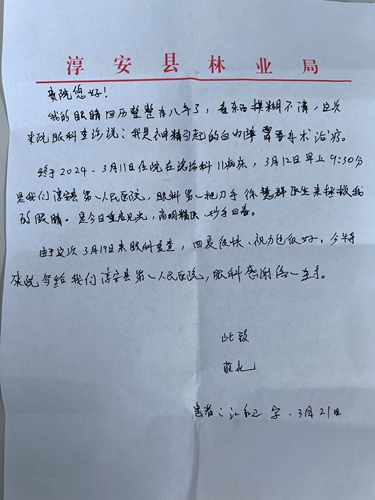 淳安县林业局
贵院您好!
我的眼睛因历整整有八年了,看东西模糊不清,这次
来院眼科查诊说:我是引起的白内障需要手术治疗。
终于2024.3月11日住院在11病床,3月12日早上9:30分
是我们淳安县第一人民医院,眼科第一把刀手徐慧群医生来拯救我
的眼睛,是今日重启见光,高明精医,妙手回春。
由于这次3月19日来眼科复查,回复很快、视力也很好。今特
来院写给我们淳安县第一人民医院,眼科感谢信一封。
此致
敬礼
患者:江 字.3月21日